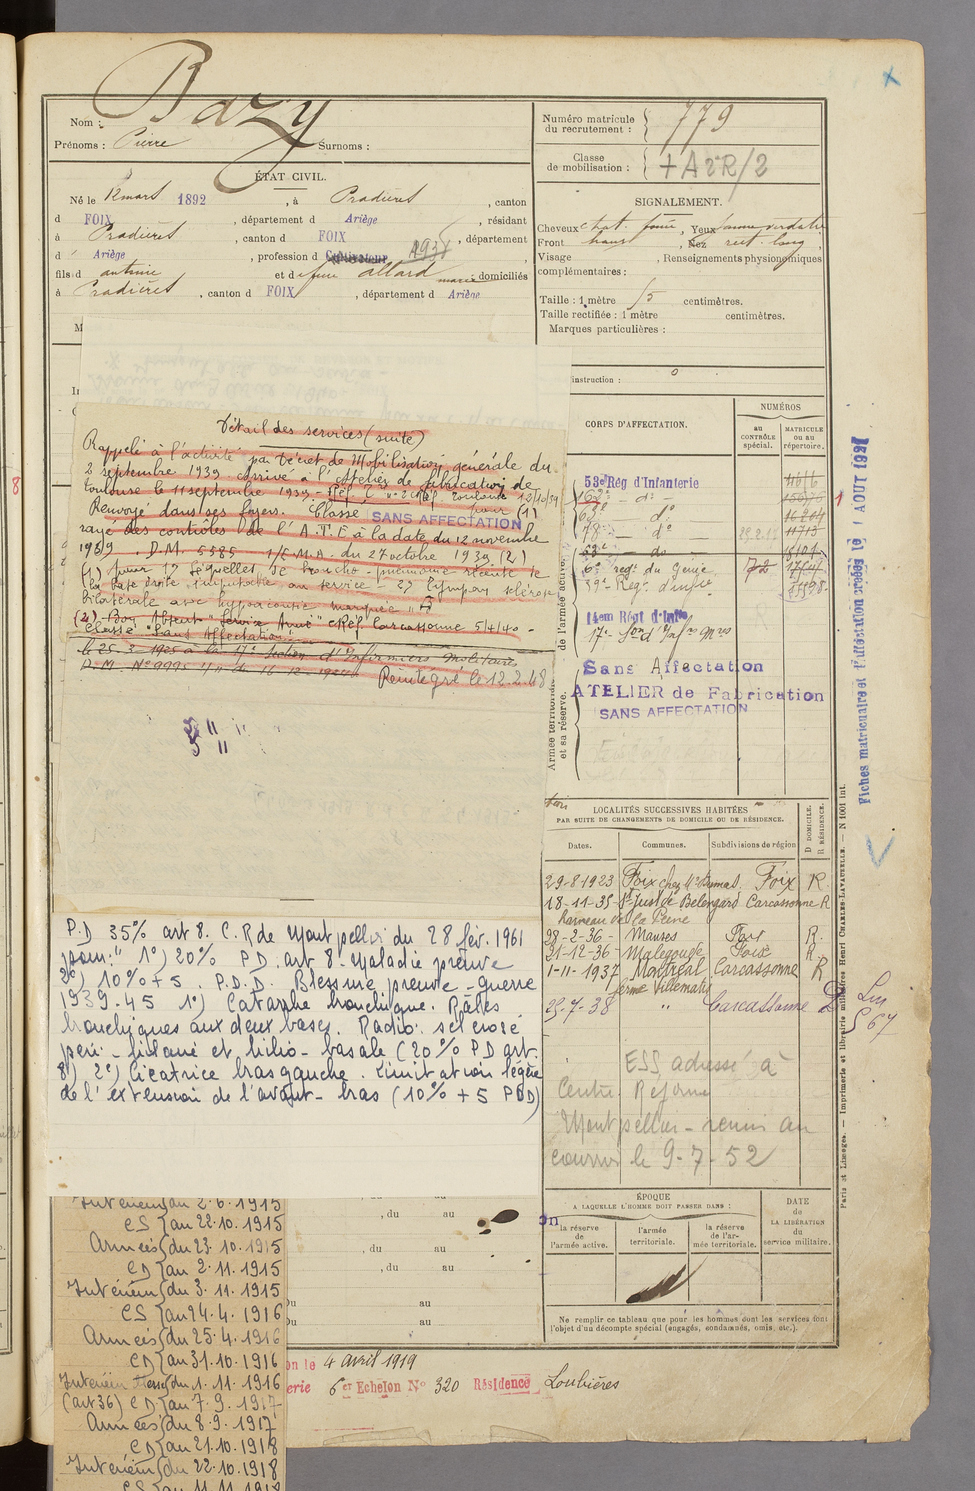 Bazy
Nom :
Prénoms : Pierre Surnoms :
ÉTAT CIVIL.
Né le 12 mars 1892, à Pradières, canton
d FOIX, département d Ariège, résidant
à Pradières, canton d FOIX, département
d Ariège, profession d Cultivateur
fils d antoine et d feue allard domiciliés
à Pradières, canton d FOIX, département d Ariège
Numéro matricule
du recrutement : 779
Classe
de mobilisation :
SIGNALEMENT.
Cheveux chat. foncé, Yeux jaune verdâtre
Front haut, Nez rect. long,
Visage , Renseignements physionomiques
complémentaires :
Taille : 1 mètre 5 centimètres.
Taille rectifiée : 1 mètre centimètres.
Marques particulières :
instruction : 0
Détail des services (suite)
Rappelé à l'activité par Décret de Mobilisation générale du
2 septembre 1939. arrivé à l'attelier de fabrication de
Toulouse le 11 septembre 1939 - Toulouse 12/10/39
Renvoyé dans ses foyers. Classé SANS AFFECTATION pour (1)
rayé des contrôles de l'A.T.E à la date du 12 novembre
1939. D.M. 5585 1/E.M.A. du 27 octobre 1939 (2)
(1) pour 1º Séquelles de broncho-pneumonie récente de
la base droite imputable au service 2º Tympan sclérose
bilatérale avec hypoacousie marquée
(2) Bon Absent "Service Armé" CRéf Carcassonne 5/4/40 -
Classé Sans Affectation
le 25-3-1925 à la 17e Section d'Infirmiers Militaires
D.M. Nº 9995
Réintégré le 12.2.48
CORPS D'AFFECTATION.
NUMÉROS
au
CONTRÔLE
spécial.
MATRICULE
ou au
répertoire.
53e Rég d'Infanterie
dº
dº
dº
6e regt du Génie
Regt d'infie
14em Régt d'Infie
17e Son d'Infres Mres
Sans Affectation
ATELIER de Fabrication
SANS AFFECTATION
de l'armée active.
Armée territoriale
et sa réserve.
LOCALITÉS SUCCESSIVES HABITÉES
PAR SUITE DE CHANGEMENTS DE DOMICILE OU DE RÉSIDENCE.
Dates. Communes. Subdivisions de région
D DOMICILE.
R RÉSIDENCE.
29-8-1923 Foix chez Mr Dumas Foix R
18-11-35 St Just de Belengard Carcassonne R
hameau de la Plene
28-2-36 - Manses Foix R
21-12-36 - Malegoude Foix R
1-11-1937 Montréal Carcassonne R
ferme Villematy
25-7-38 " Carcassonne D
ESS adressé à
Centre Réforme
Montpellier - remis au
courrier le 9-7-52
P.D 35% art 8. C.R de Montpellier du 28 fév. 1961
pour : " 1º) 20% PD. art 8 - maladie preuve
2º) 10% + 5. P.D.D. Blessure preuve - guerre
1939-45 1º) Catarrhe bronchique. Râles
bronchiques aux deux bases. Radio : sclérose
péri-hilaire et hilio-basale (20% P D art.
8) 2º) Cicatrice bras gauche. Limitation légère
de l'extension de l'avant-bras (10% + 5 PDD)
Intérieur au 2.6.1915
CS au 22.10.1915
Armées du 23.10.1915
CD au 2.11.1915
Intérieur du 3.11.1915
CS au 24.4.1916
Armées du 25.4.1916
CD au 31.10.1916
Intérieur du 1.11.1916
(art 36) CD au 7.9.1917
Armées du 8.9.1917
CD au 21.10.1918
Intérieur du 22.10.1918
, du au
, du au
, du au
Du au
Du au
ÉPOQUE
A LAQUELLE L'HOMME DOIT PASSER DANS :
la réserve
de
l'armée active.
l'armée
territoriale.
la réserve
de l'ar-
mée territoriale.
DATE
de
LA LIBÉRATION
du
service militaire.
Ne remplir ce tableau que pour les hommes dont les services font
l'objet d'un décompte spécial (engagés, condamnés, omis, etc.).
on le 4 avril 1919
erie 6er Echelon Nº 320 Résidence Loubières
Fiches matriculaire et d'affectation créées le 1 AOUT 1921
Paris et Limoges. — Imprimerie et librairie militaires Henri CHARLES-LAVAUZELLE. — N 1001 int.